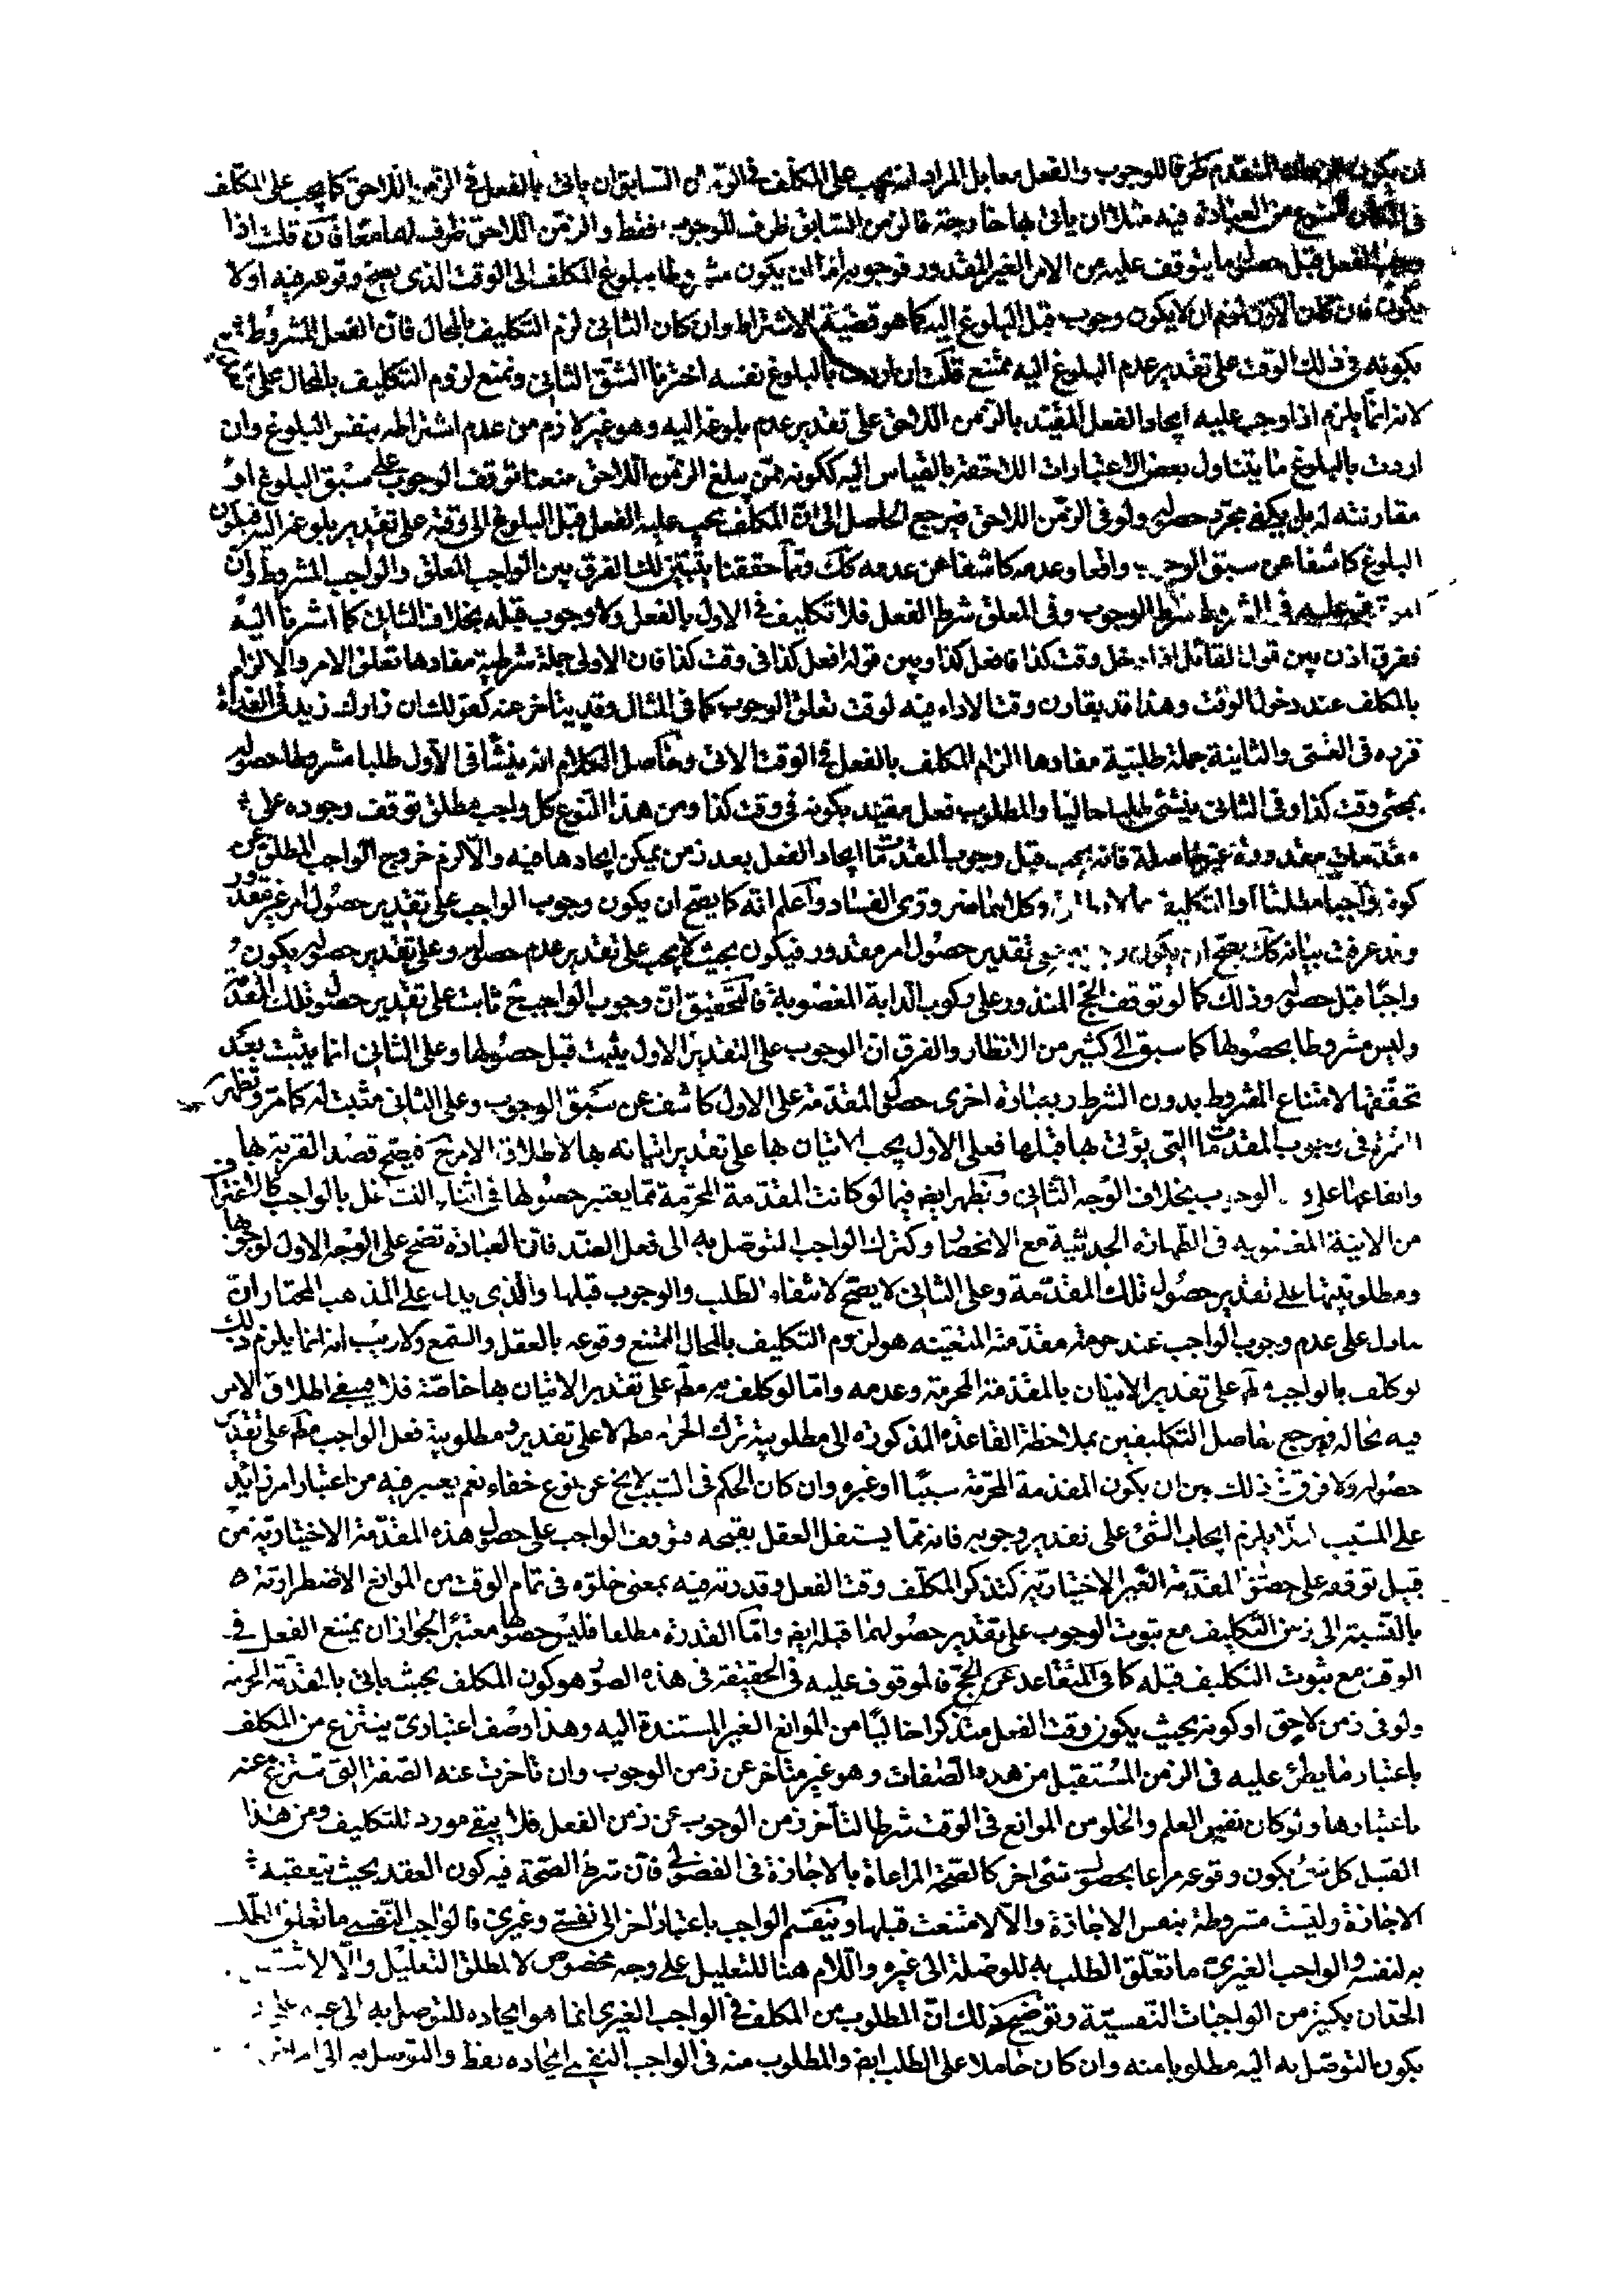 ان يكون المتقدم ظرفا للوجوب والفعل معا بل المراد انه يجب على المكلف فى الزمن السابق ان ياتى بالفعل فى الزمن اللاحق كما يجب على المكلف
فى المكان من العبادة فيه مثلا ان ياتى بها خارجة فالزمن السابق ظرف للوجوب فقط والزمن اللاحق ظرف لهما معا فان قلت اذا
الفعل قبل حصول ما يتوقف عليه من الامر الغير المقدور فوجوبه اما ان يكون مشروطا ببلوغ المكلف الى الوقت الذى يصح وقوعه فيه اولا
يكون فان كان الاول لزم ان لا يكون وجوب قبل البلوغ اليه كما هو قضية الاشتراط وان كان الثانى لزم التكليف بالمحال فان الفعل المشروط
بكونه فى ذلك الوقت على تقدير عدم البلوغ اليه ممتنع قلت ان اريد بالبلوغ نفسه اخترنا الشق الثانى ونمنع لزوم التكليف بالمحال على
لانه انما يلزم اذا وجب عليه ايجاد الفعل المقيد بالزمن اللاحق على تقدير عدم بلوغه اليه وهو غير لازم من عدم اشتراطه بنفس البلوغ وان
اردت بالبلوغ ما يتناول بعض الاعتبارات اللاحقة بالقياس اليه ككونه ممن يبلغ الزمن اللاحق منعنا توقف الوجوب على سبق البلوغ او
مقارنته له بل يكفى مجرد حصوله ولو فى الزمن اللاحق فيرجع الحاصل الى ان المكلف يجب عليه الفعل قبل البلوغ الى وقته على تقدير بلوغه اليه فيكون
البلوغ كاشفا عن سبق الوجوب واقعا وعدمه كاشفا عن عدمه كك ومما حققنا يتبين لك الفرق بين الواجب المعلق والواجب المشروط وان
عليه فى المشروط شرط الوجوب وفى المعلق شرط الفعل فلا تكليف فى الاول بالفعل ولا وجوب قبله بخلاف الثانى كما اشرنا اليه
ففرق اذن بين قول القائل اذا دخل وقت كذا فافعل كذا وبين قوله افعل كذا فى وقت كذا فان الاولى جملة شرطية مفادها تعلق الامر والالزام
بالمكلف عند دخول الوقت وهذا قد يقارن وقت الاداء فيه لوقت تعلق الوجوب كما فى المثال وقد يتاخر عنه كقولك ان زارك زيد فى الغداة
فزره فى العشى والثانية جملة طلبية مفادها الزام المكلف بالفعل فى الوقت الاتى وحاصل الكلام انه ينشأ فى الاول طلبا مشروطا حصوله
بمجئ وقت كذا وفى الثانى ينشئ طلبا حاليا والمطلوب فعل مقيد بكونه فى وقت كذا ومن هذا النوع كل واجب مطلق توقف وجوده على
مقدمات مقدورة غير حاصلة فانه يجب قبل وجوب المقدمات ايجاد الفعل بعد زمن يمكن ايجادها فيه والا لزم خروج الواجب المطلق عن
كونه واجبا مطلقا او التكليف وكلاهما ضرورى الفساد واعلم انه كما يصح ان يكون وجوب الواجب على تقدير حصول امر غير مقدور
وقد عرفت بيانه كك يصح ان يكون تقدير حصول امر مقدور فيكون بحيث لا يجب على تقدير عدم حصوله وعلى تقدير حصوله يكون
واجبا قبل حصوله وذلك كما لو توقف الحج المنذور على ركوب الدابة المغصوبة فالتحقيق ان وجوب الواجب ح ثابت على تقدير حصول تلك المقدمة
وليس مشروطا بحصولها كما سبق الى كثير من الانظار والفرق ان الوجوب على التقدير الاول يثبت قبل حصولها وعلى الثانى انما يثبت بعد
تحققها لامتناع المشروط بدون الشرط وبعبارة اخرى حصول المقدمة على الاول كاشف عن سبق الوجوب وعلى الثانى مثبت له كما مر وتظهر
الثمرة فى وجوب المقدمات التى يؤتى بها قبلها فعلى الاول يجب الاتيان بها على تقدير اتيانه بها لاطلاق الامر ح فيصح قصد القربة بها
وايقاعها على الوجوب بخلاف الوجه الثانى وتظهر ايضا فيما لو كانت المقدمة المحرمة مما يعتبر حصولها فى اثناء التشاغل بالواجب كالاغتراف
من الانية المغصوبة فى الطهارة الحدثية مع الانحصار وكترك الواجب لتوصل به الى فعل الضد فان العبادة تصح على الوجه الاول لوجوبها
ومطلوبيتها على تقدير حصول تلك المقدمة وعلى الثانى لا يصح لانتفاء الطلب والوجوب قبلها والذى يدل على المذهب المختار ان
ما دل على عدم وجوب الواجب عند حرمة مقدمته المتعينه هو لزوم التكليف بالمحال الممتنع وقوعه بالعقل والسمع ولا ريب انه انما يلزم ذلك
لو كلف بالواجب مط على تقدير الاتيان بالمقدمة المحرمة وعدمه واما لو كلف به مط على تقدير الاتيان بها خاصة فلا فيبقى اطلاق الامر
فيه بحاله فيرجع حاصل التكليفين بملاحظة القاعدة المذكورة الى مطلوبية ترك الحرام مط لا على تقدير ومطلوبية فعل الواجب مط على تقدير
حصوله ولا فرق فى ذلك بين ان يكون المقدمة المحرمة سببا او غيره وان كان الحكم فى السبب لا يخ عن نوع خفاء نعم يعتبر فيه من اعتبار امر زائد
على المسبب لئلا يلزم ايجاب الشئ على تقدير وجوبه فانه مما يستقل العقل بقبحه فتوقف الواجب على حصول هذه المقدمة الاختيارية من
قبيل توقفه على حصول المقدمة الغير الاختيارية كتذكر المكلف وقت الفعل وقدرته فيه بمعنى خلوه فى تمام الوقت من الموانع الاضطرارية
بالنسبة الى زمن التكليف مع ثبوت الوجوب على تقدير حصولهما قبله ايضا واما القدرة مطلقا فليس حصولها معتبرا لجواز ان يمتنع الفعل فى
الوقت مع ثبوت التكليف قبله كما فى المتقاعد عن الحج فالموقوف عليه فى الحقيقة فى هذه الصور هو كون المكلف بحيث ياتى بالمقدمة المحرمة
ولو فى زمن لاحق او كونه بحيث يكون وقت الفعل متذكرا خاليا من الموانع الغير المستندة اليه وهذا وصف اعتبارى ينتزع من المكلف
باعتبار ما يطرء عليه فى الزمن المستقبل من هذه الصفات وهو غير متاخر عن زمن الوجوب وان تاخرت عنه الصفة التى تنتزع عنه
باعتبارها ولو كان نفس العلم والخلو من الموانع فى الوقت شرطا لتاخر زمن الوجوب عن زمن الفعل فلا يبقى مورد للتكليف ومن هذا
القبيل كل شئ يكون وقوعه مراعا بحصول شئ اخر كالصحة المراعاة بالاجازة فى الفضولى فان شرط الصحة فيه كون العقد بحيث يتعقبه
الاجازة وليست مشروطة بنفس الاجازة والا لامتنعت قبلها وينقسم الواجب باعتبار اخر الى نفسى وغيرى فالواجب النفسى ما تعلق الطلب
به لنفسه والواجب الغيرى ما تعلق الطلب به للوصلة الى غيره واللام هنا للتعليل على وجه مخصوص لا لمطلق التعليل والا
الحدان بكثير من الواجبات النفسية وتوضيح ذلك ان المطلوب من المكلف فى الواجب الغيرى انما هو ايجاده للتوصل به الى غيره
يكون التوصل به اليه مطلوبا منه وان كان حاملا على الطلب ايضا والمطلوب منه فى الواجب النفسى ايجاده فقط والتوصل به الى امر